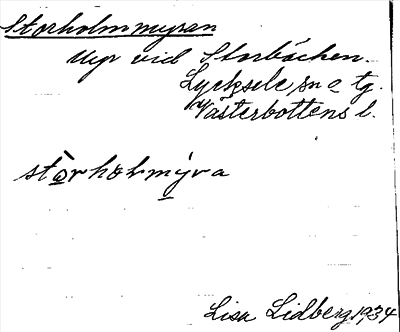 Storholmmyran
Myr vid Storbäcken.
Lycksele sn o tg.
Västerbottens l.
stòrholmýra
Lisa Lidberg 1934